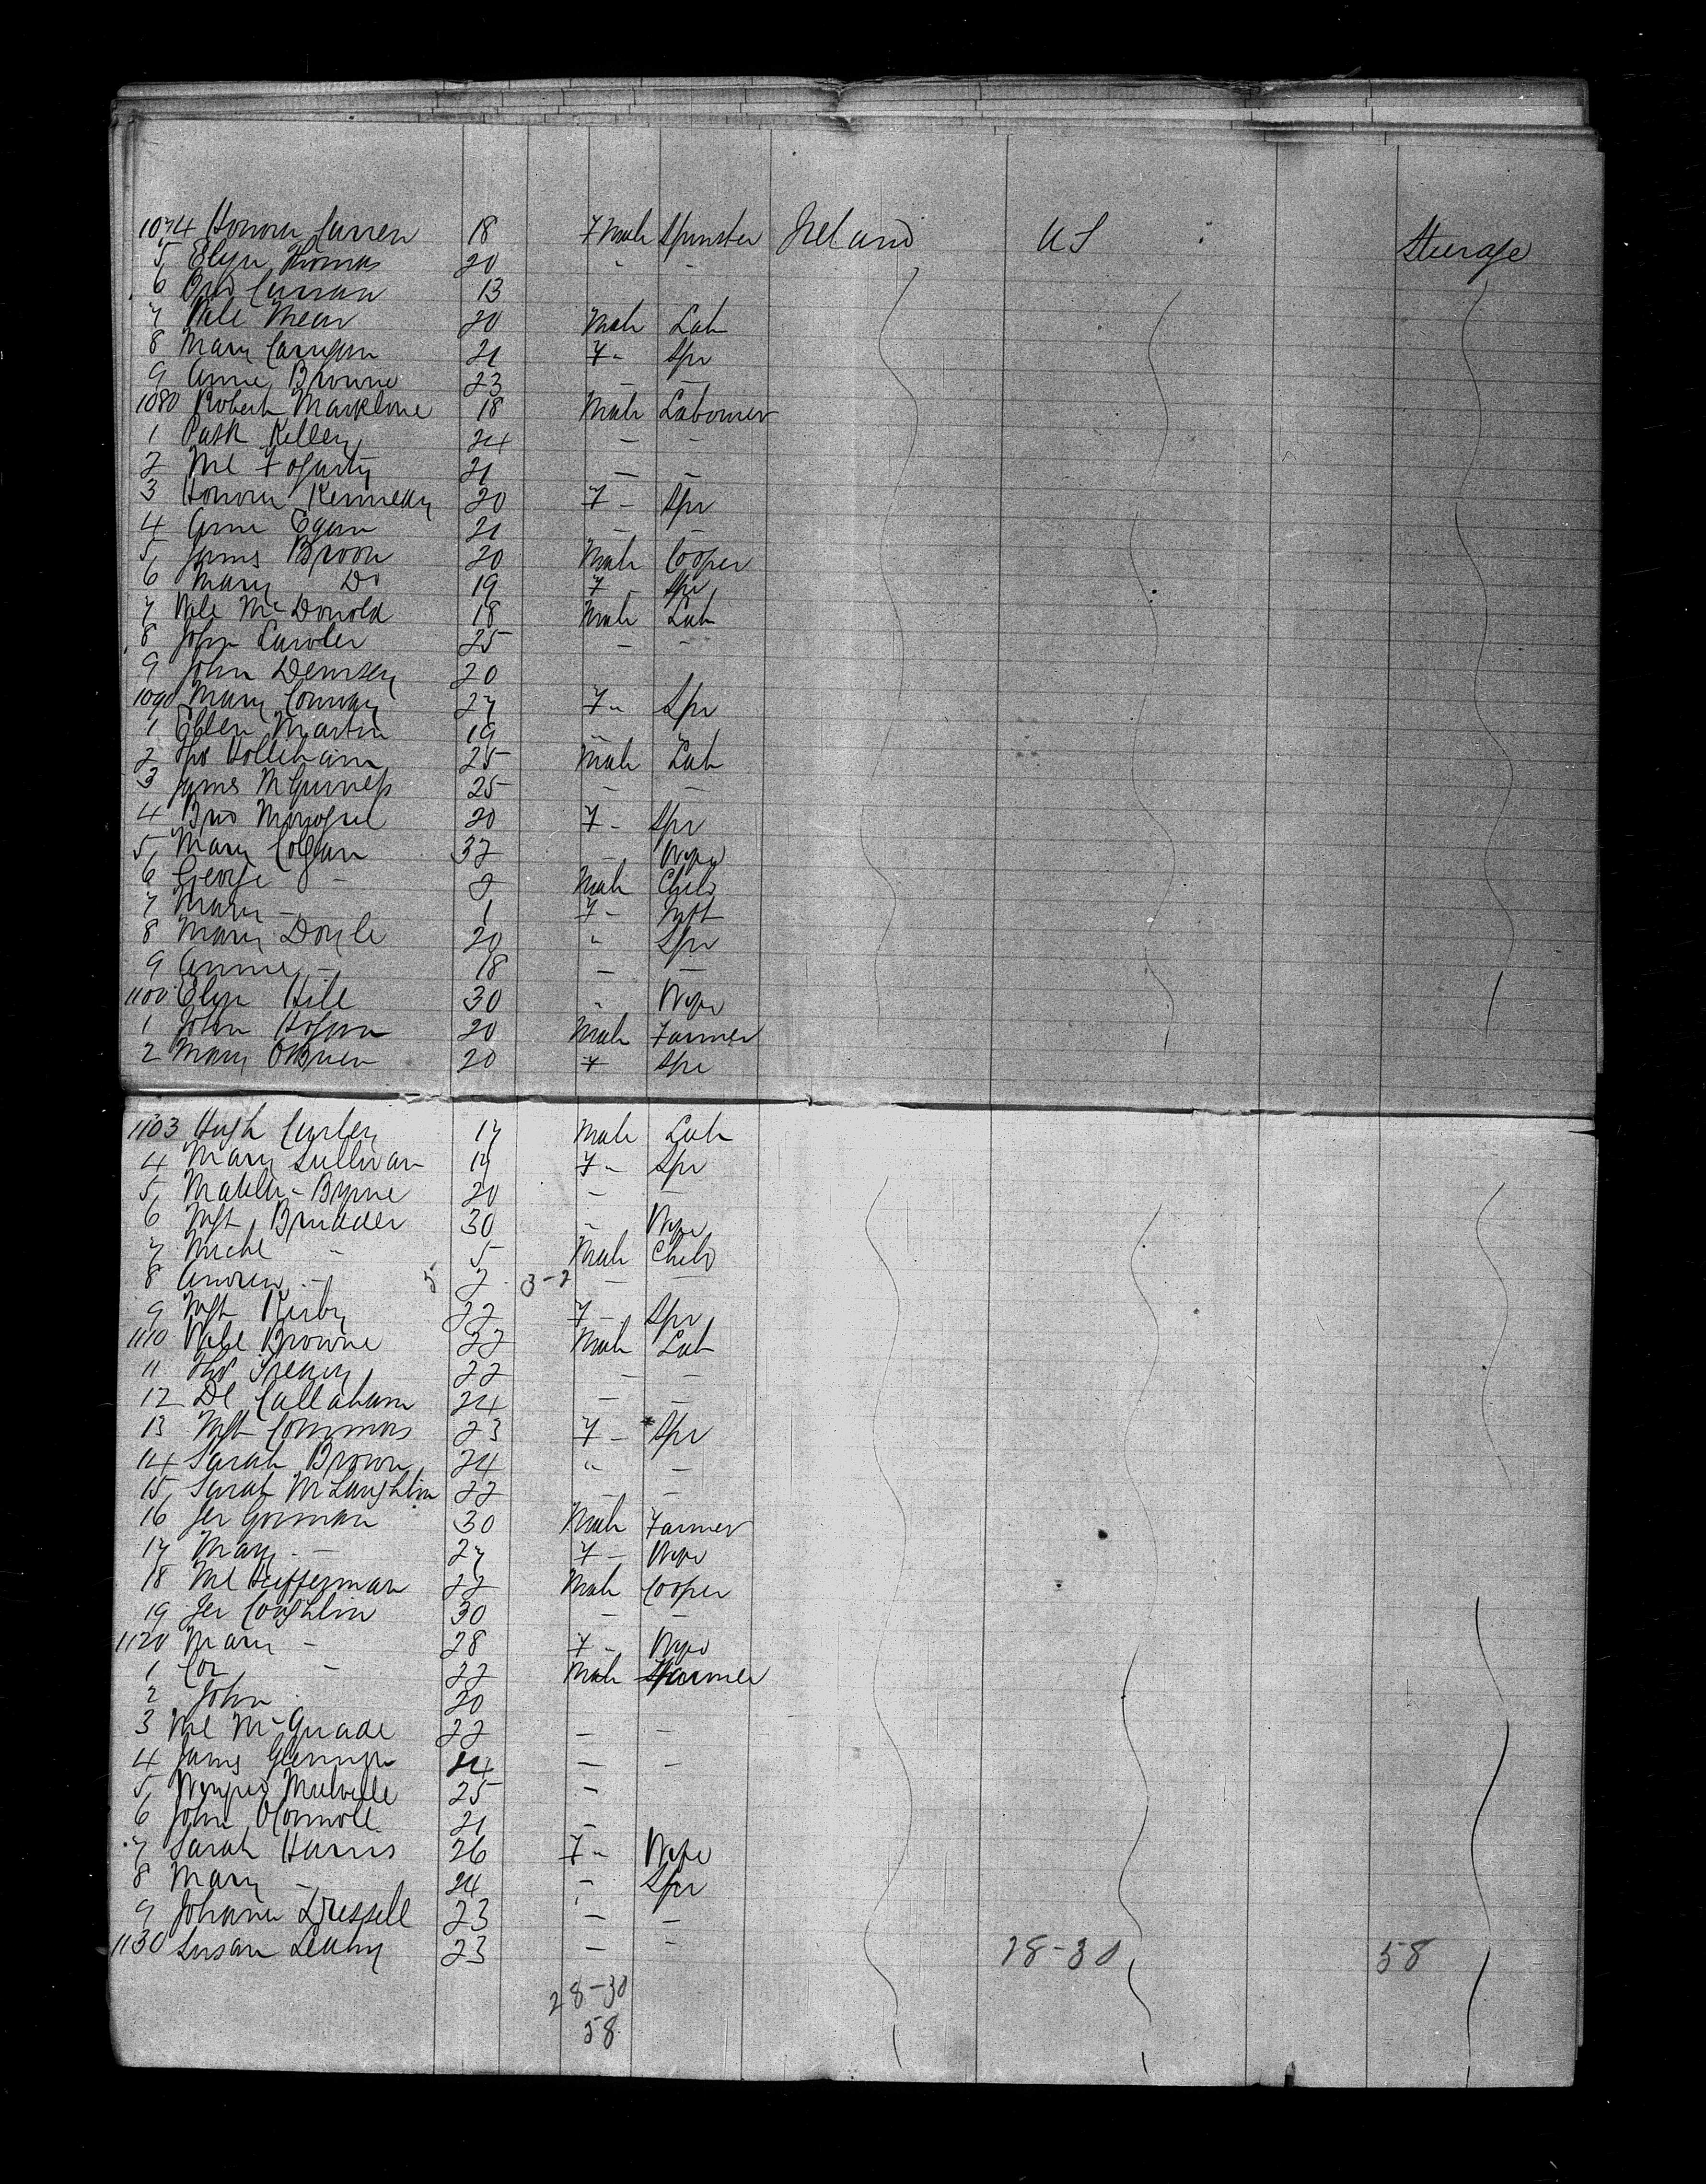 1074 Honora Curren 18 F Male Spinster Ireland US Steerage
5 Eliza Thomas 20 " -
6 Brid Curran 13
7 20 Male Lab
8 Mary Carrigan 21 F " Spr
9 Annie Browne 23 - -
1080 Robert 18 Male Labourer
1 Patk Kelley 24 - -
2 Ml Fogarty 21 - -
3 Honora Kennedy 20 F - Spr
4 Anne Egan 21 - -
5 James Broon 20 Male Cooper
6 Mary Do 19 F Spr
7 McDonold 18 Male Lab
8 John Lawler 25 - -
9 John Demsey 20
1090 Mary Conway 27 F " Spr
1 Ellen Martin 19
2 Thos Hollehan 25 Male Lab
3 James McGuiness 25 - -
4 Brid Monogue 20 F - Spr
5 Mary Colgan 32 - Wife
6 George - 2 Male Child
7 Mary - 1 F - Inft
8 Mary Doyle 20 " Spr
9 Annie - 18 - -
1100 Eliza Hill 30 " Wife
1 John Hogan 20 Male Farmer
2 Mary OBrien 20 F Spr
1103 Hugh Curley 17 Male Lab
4 Mary Sullivan 19 F " Spr
5 Byrne 20 - -
6 Mgt Brudder 30 " Wife
7 Michl " 5 Male Child
8 Andrew - 5 2 3-2 - -
9 Mgt Kirby 22 F - Spr
1110 Browne 22 Male Lab
11 Thos Treacy 22 - -
12 Dl Callahan 24 - -
13 Mgt Commons 23 F - Spr
14 Sarah Brown 24 " -
15 Sarah McLaughlin 22 - -
16 Jer Gorman 30 Male Farmer
17 Mary - 27 F - Wife
18 Ml Heffernan 22 Male Cooper
19 Jer Coughlin 30 - -
1120 Mary - 28 F - Wife
1 Cor - 22 Male Farmer
2 John 20
3 Ml McQuade 22 - -
4 James 24 - -
5 Melville 25 -
6 John OConnoll 21 -
7 Sarah Harris 26 F " Wife
8 Mary - 24 - Spr
9 Johana 23 - -
1130 Susan Leahy 23 - - 28-30 58
28-30
58